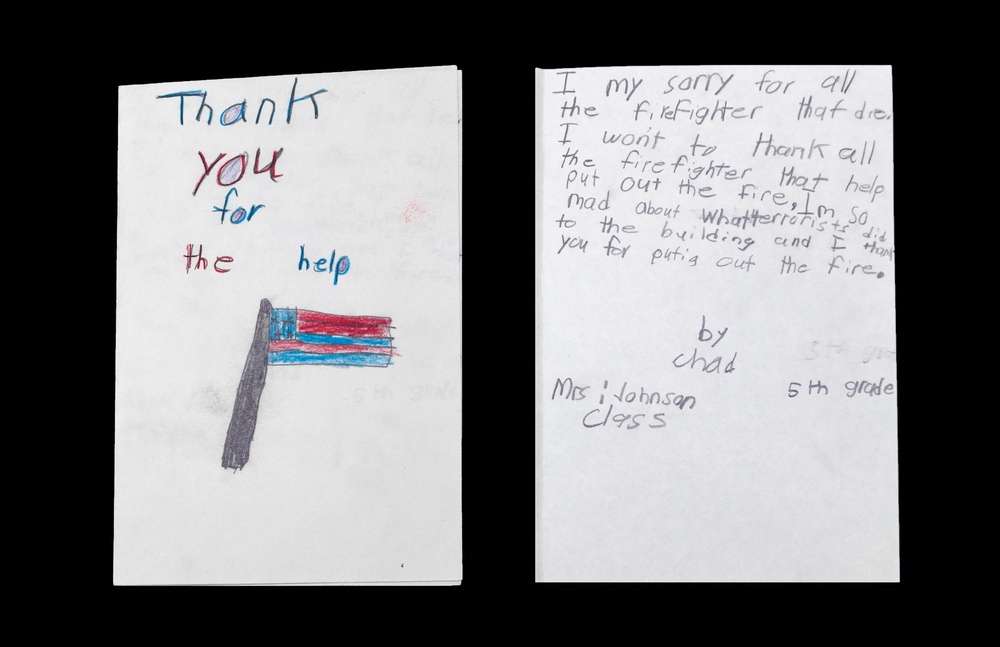 Thank
you
for
the help
I my sorry for all
the firefighter that die.
I won't to thank all
the firefighter that help
put out the fire, Im so
mad about what terrorists did
to the building and I thank
you for putig out the fire.
by
chad
Mrs Johnson 5th grade
Class